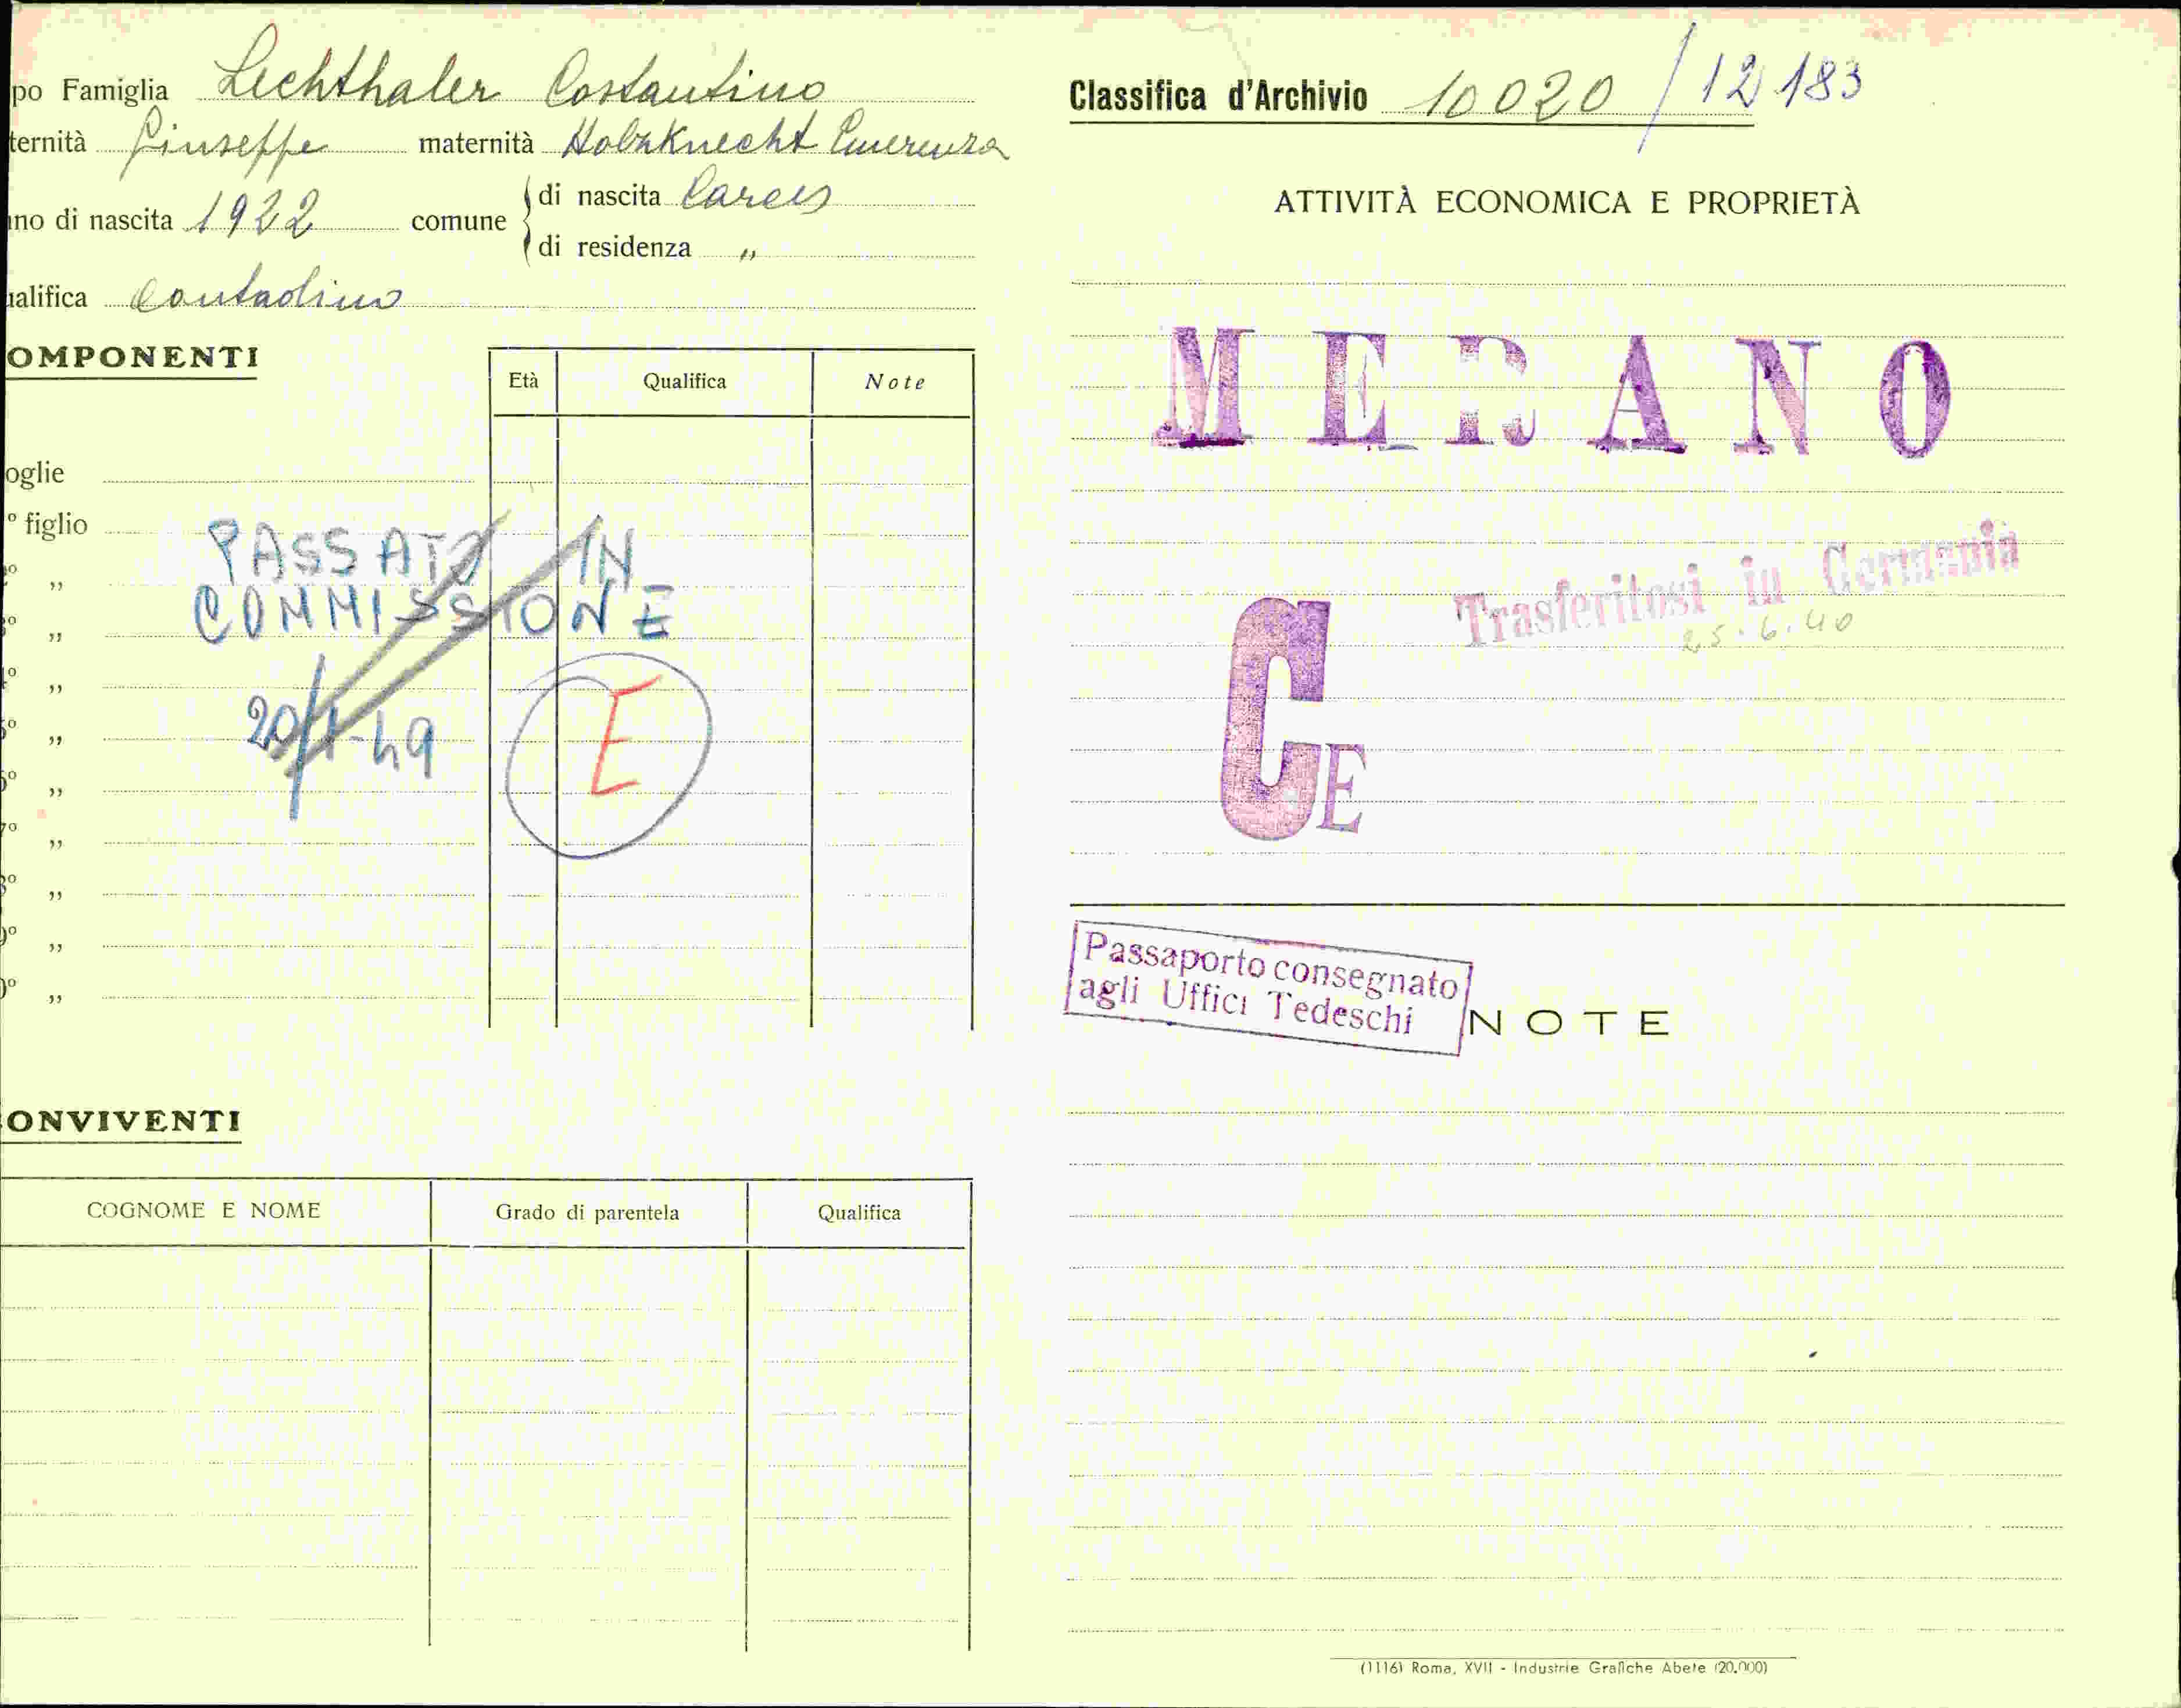 po Famiglia Lechthaler Costantino
ternità Giuseppe maternità Holzknecht Emerenza
no di nascita 1922 comune di nascita Lares
di residenza "
alifica Contadino
OMPONENTI
Età Qualifica Note
oglie
° figlio
° "
° "
° "
° "
° "
7° "
° "
° "
° "
PASSATO IN
COMMISSIONE
20/1-49
E
ONVIVENTI
COGNOME E NOME Grado di parentela Qualifica
Classifica d'Archivio 10020 / 12183
ATTIVITÀ ECONOMICA E PROPRIETÀ
MERANO
Trasferitosi in Germania
25.6.40
CE
Passaporto consegnato
agli Uffici Tedeschi
NOTE
(1116) Roma, XVII - Industrie Grafiche Abete (20.000)